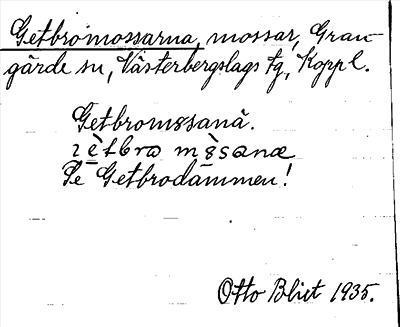 Getbromossarna, mossar, Gran-
gärde sn, Västerbergslags tg, Kopp l.
Getbromssanä.
ɿètbrɷ ms̀sanæ
Se Getbrodammen!
Otto Blixt 1935.